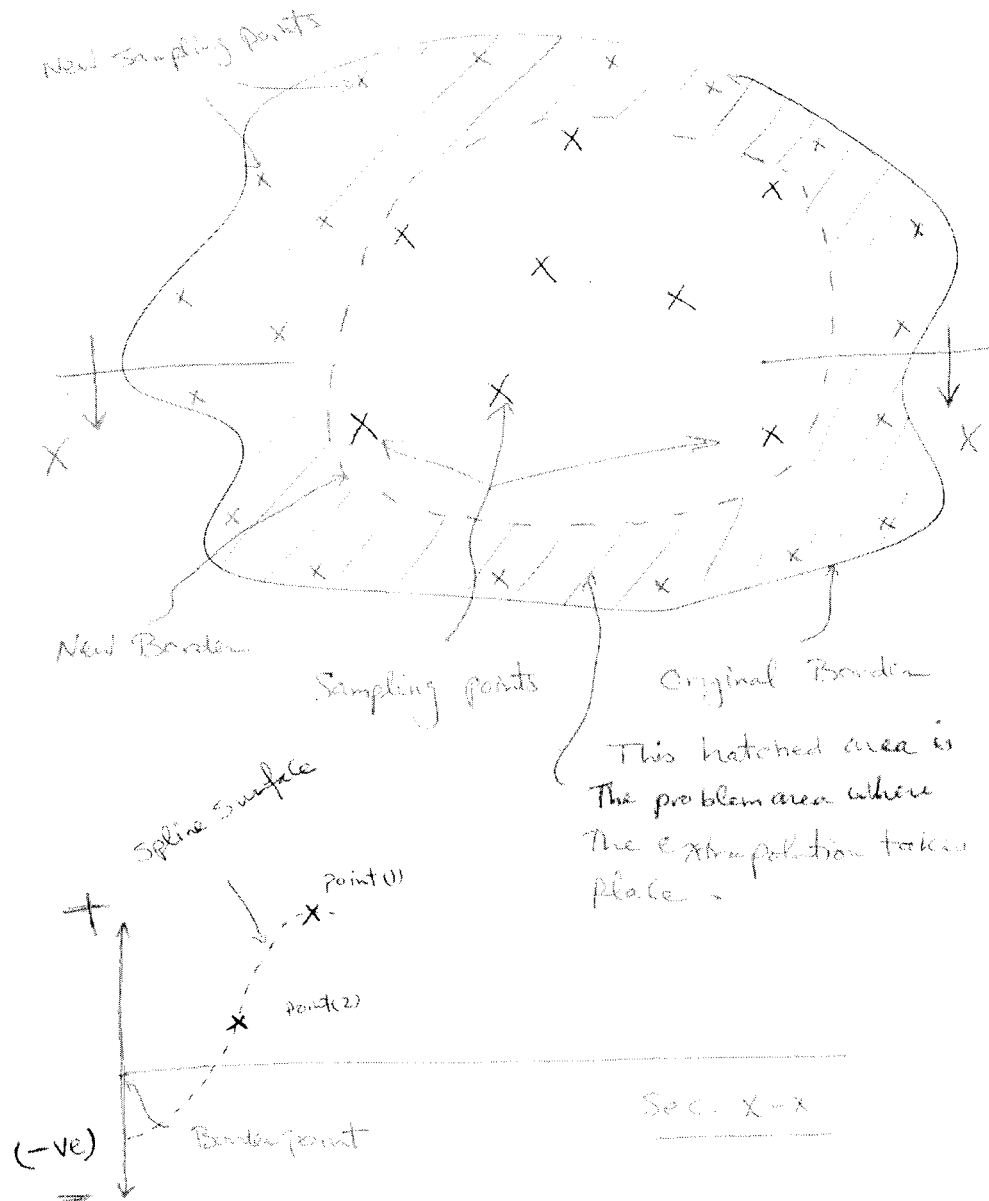 New Sampling points
X
X
New Border
Sampling points
Original Border
This hatched area is
The problem area where
The extrapolation takes
place.
Spline Surface
point(1)
+
point(2)
Sec. X-X
(-ve)
Border point
-